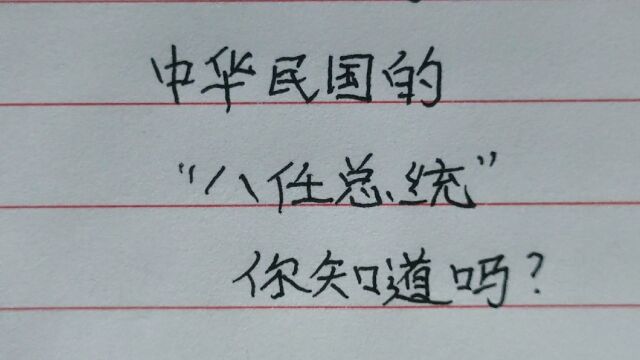 中华民国的
“八任总统”
你知道吗？